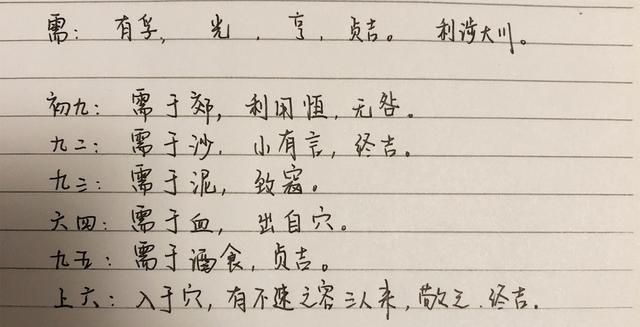 需：有孚，光，亨，贞吉。利涉大川。
初九：需于郊，利用恒，无咎。
九二：需于沙．小有言，终吉。
九三：需于泥，致寇。
六四：需于血，出自穴。
九五：需于酒食，贞吉。
上六：入于穴，有不速之客三人来，敬之．终吉．